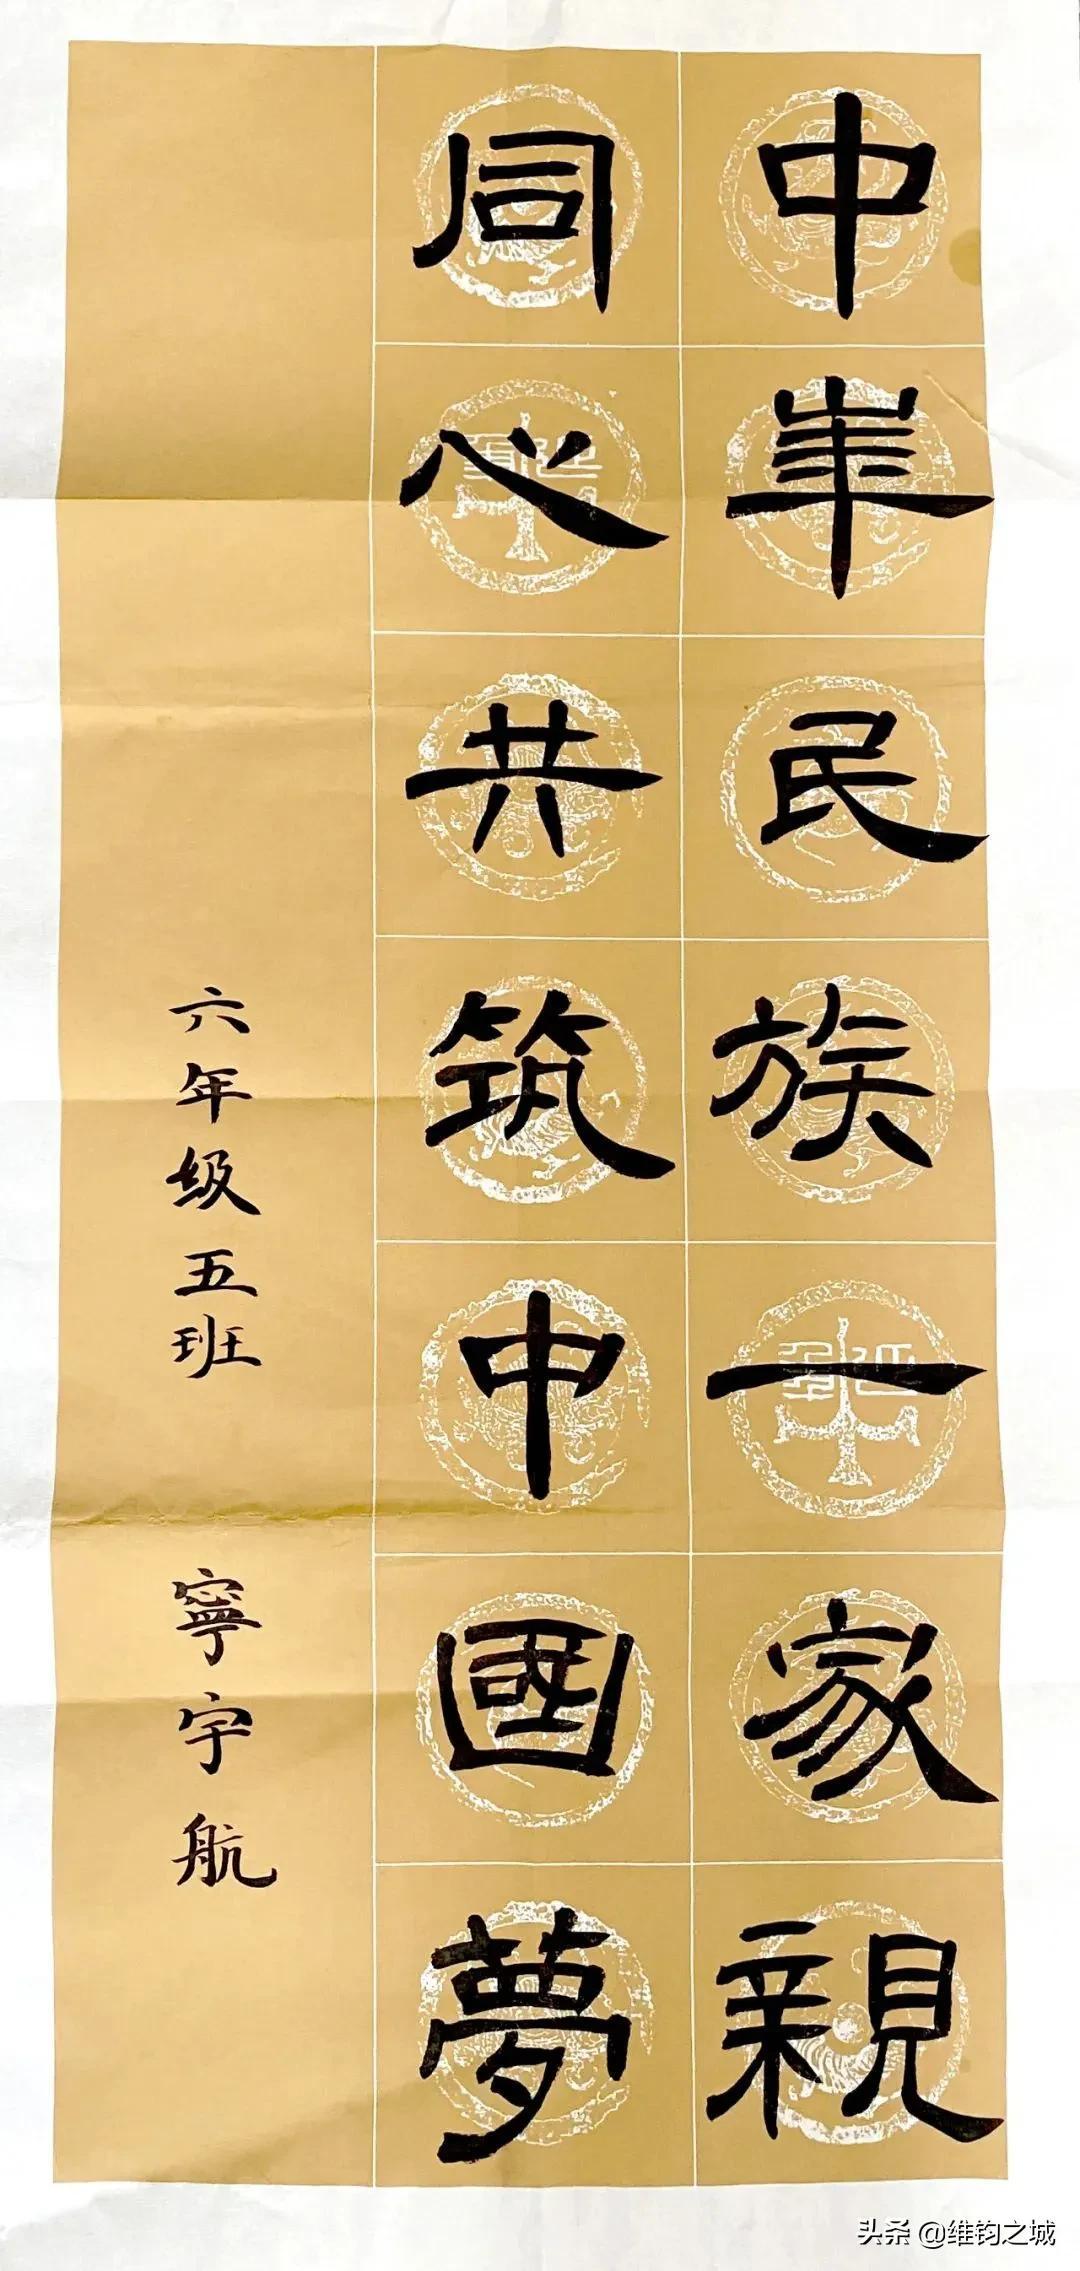 中華民族一家親
同心共筑中國夢
六年级五班 寧宇航
头条 @维钧之城